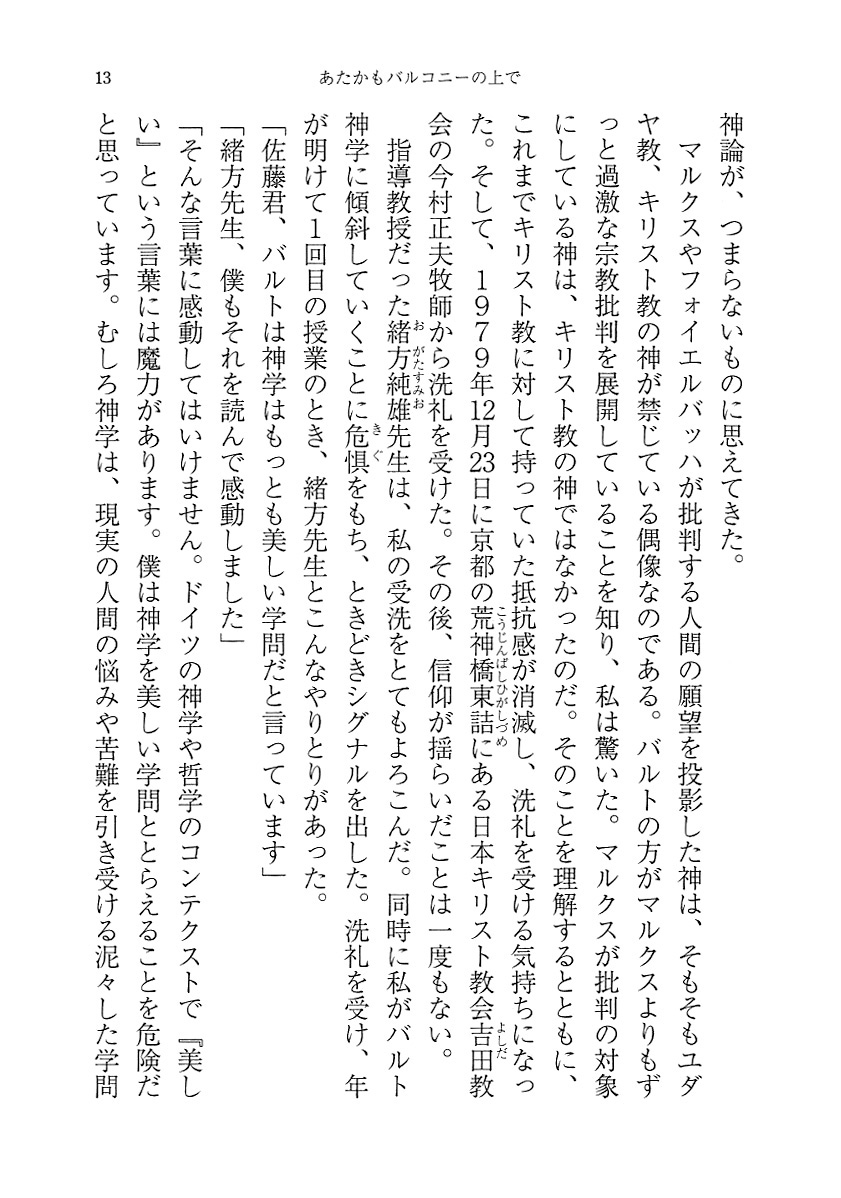 13
あたかもバルコニーの上で
神論が、つまらないものに思えてきた。
マルクスやフォイエルバッハが批判する人間の願望を投影した神は、そもそもユダ
ヤ教、キリスト教の神が禁じている偶像なのである。バルトの方がマルクスよりもず
っと過激な宗教批判を展開していることを知り、私は驚いた。マルクスが批判の対象
にしている神は、キリスト教の神ではなかったのだ。そのことを理解するとともに、
これまでキリスト教に対して持っていた抵抗感が消滅し、洗礼を受ける気持ちになっ
た。そして、1979年12月23日に京都の荒神橋東詰にある日本キリスト教会吉田教
こうじんばしひがしづめ
よしだ
会の今村正夫牧師から洗礼を受けた。その後、信仰が揺らいだことは一度もない。
指導教授だった緒方純雄先生は、私の受洗をとてもよろこんだ。同時に私がバルト
おがたすみお
神学に傾斜していくことに危惧をもち、ときどきシグナルを出した。洗礼を受け、年
きぐ
が明けて1回目の授業のとき、緒方先生とこんなやりとりがあった。
「佐藤君、バルトは神学はもっとも美しい学問だと言っています」
「緒方先生、僕もそれを読んで感動しました」
「そんな言葉に感動してはいけません。ドイツの神学や哲学のコンテクストで『美し
い』という言葉には魔力があります。僕は神学を美しい学問ととらえることを危険だ
と思っています。むしろ神学は、現実の人間の悩みや苦難を引き受ける泥々した学問